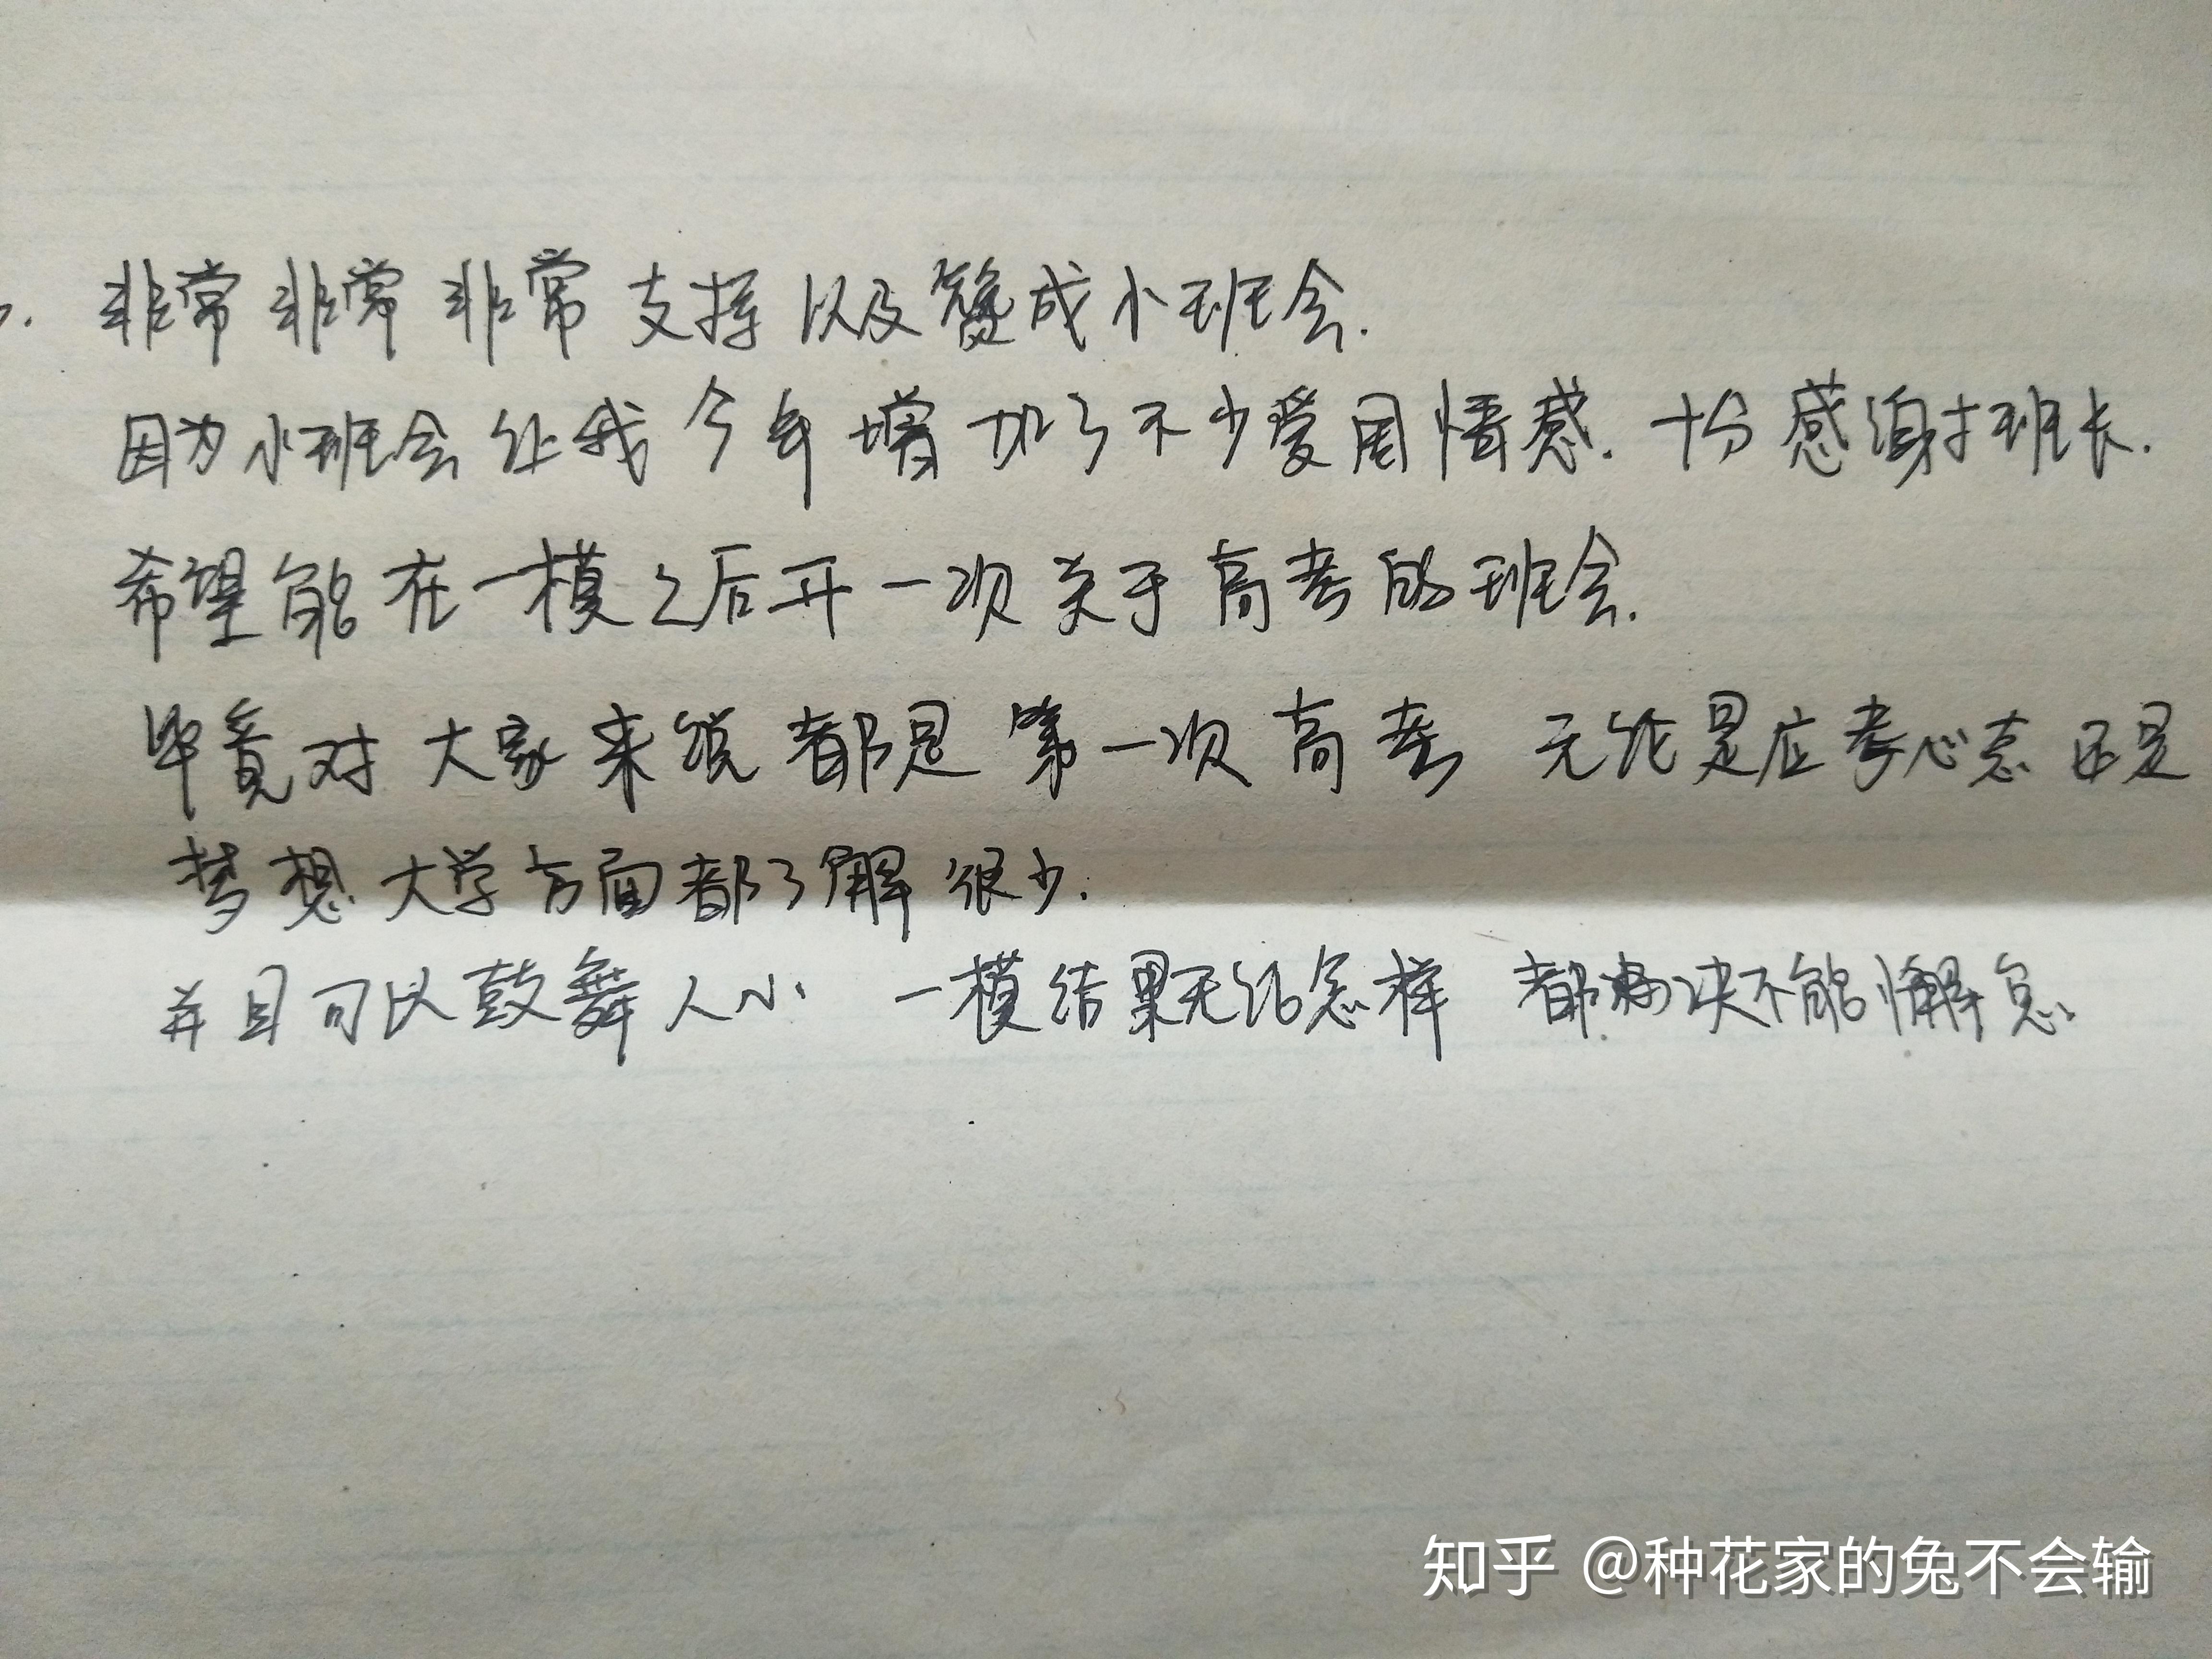 非常 非常 非常 支持 以及赞成小班会.
因为小班会 让我 今年 增加了不少爱国情感. 十分感谢班长.
希望能在一模之后开一次关于高考的班会.
毕竟对大家来说都是第一次高考 无论是应考心态还是
梦想大学方面都了解很少.
并且可以鼓舞人心 一模结果无论怎样 都决不能懈怠
知乎 @种花家的兔不会输